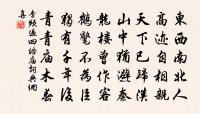 東西南北人
高迹自相親
天下已歸漢
山中猶避秦
龍樓曾作客
鶴氅不為臣
獨有千年後
青青庙木春
李頻過四皓庙詞典網
喜